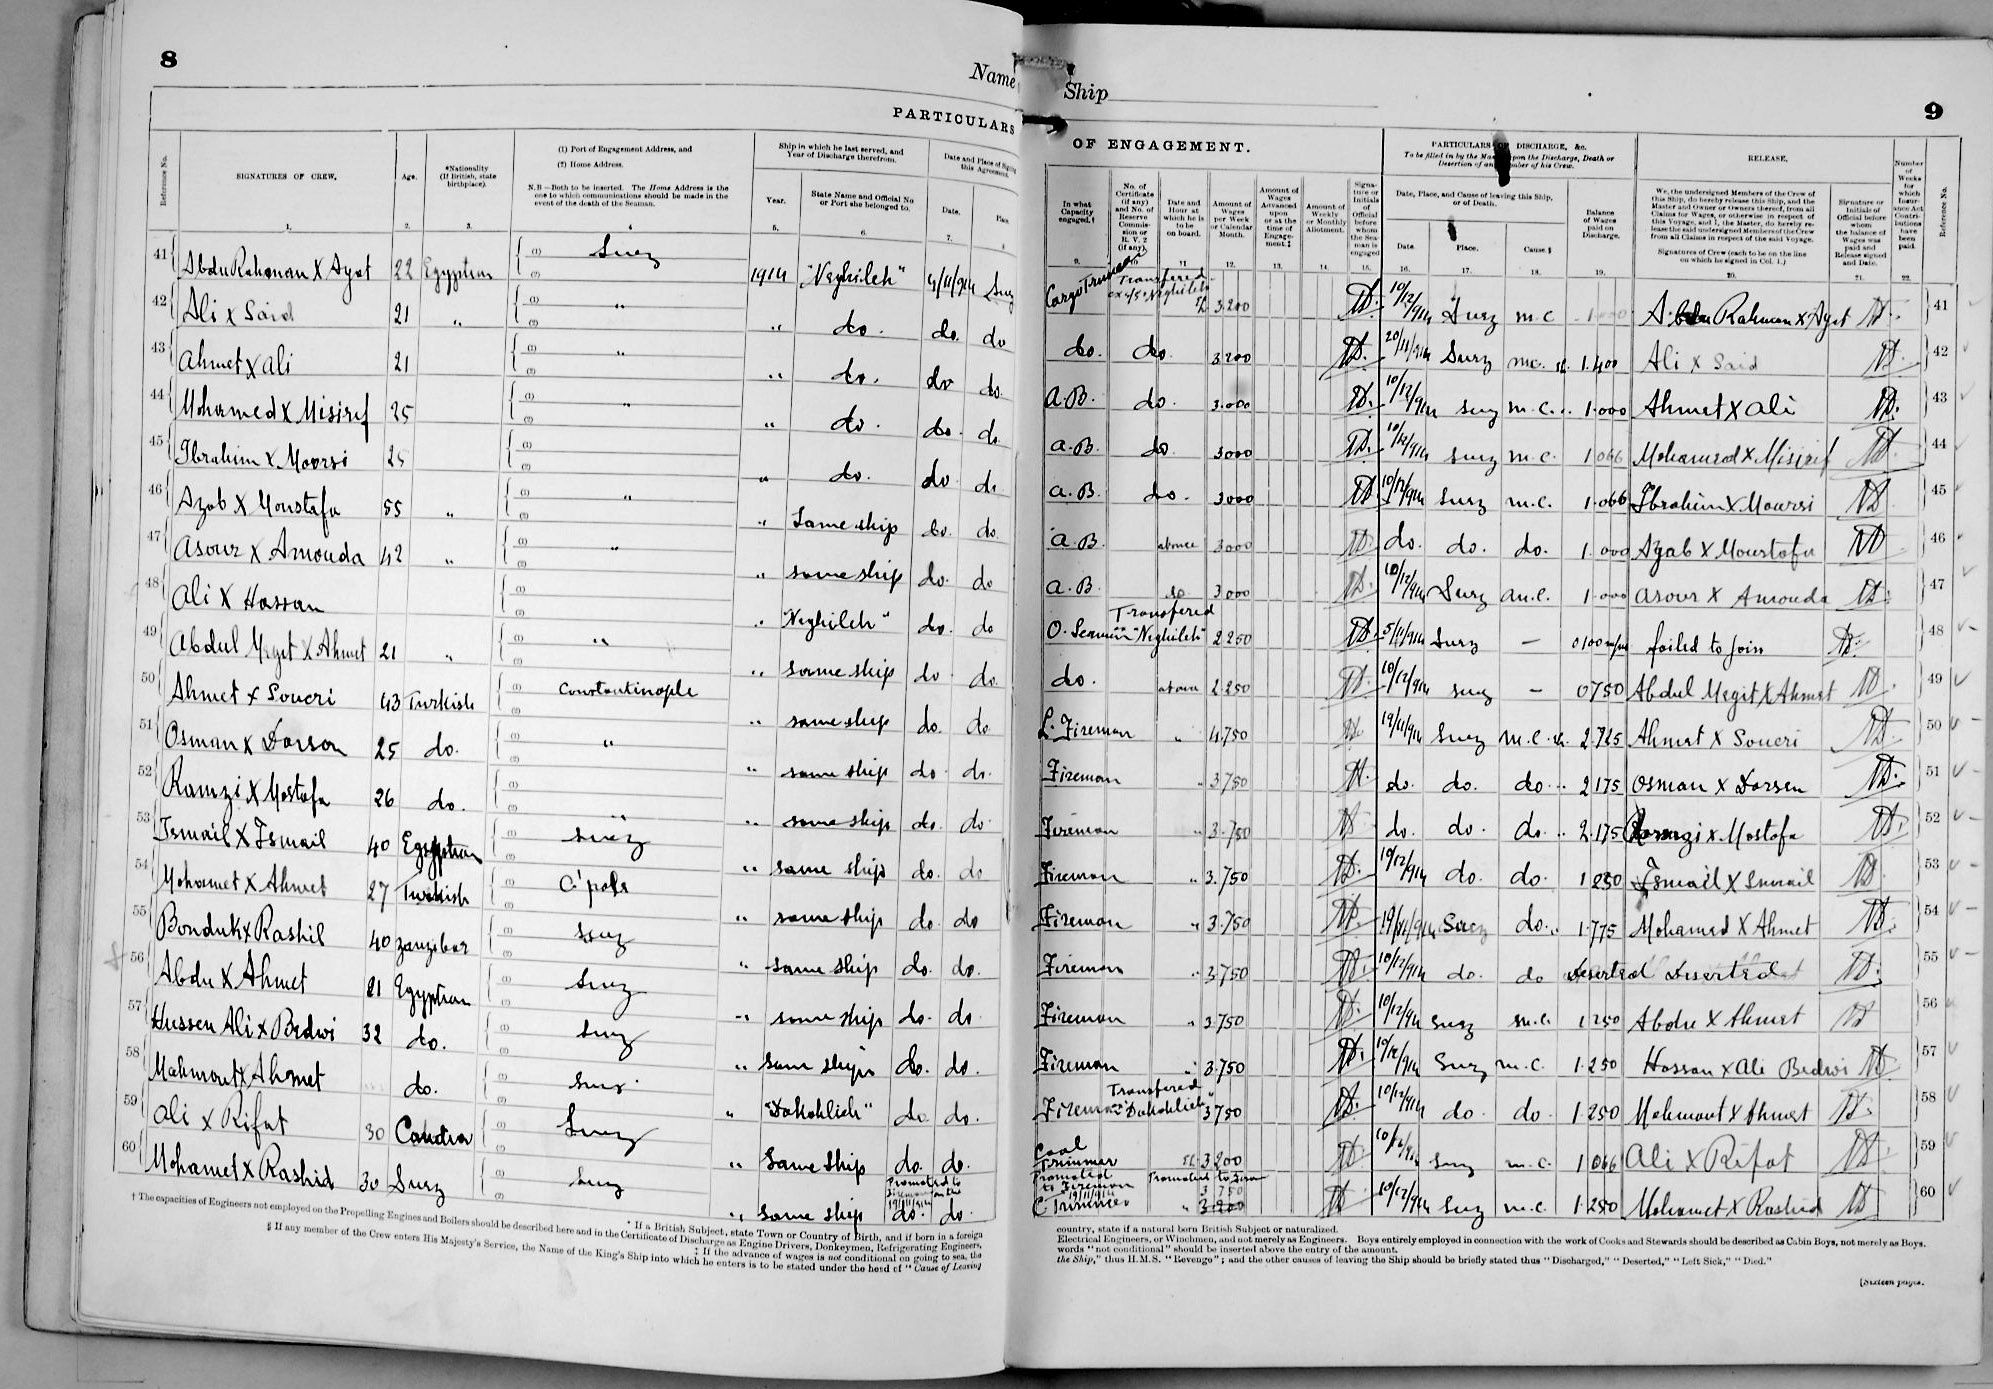 8
Name
PARTICULARS
Reference No.
SIGNATURES OF CREW.
Age.
*Nationality
(If British, state
birthplace).
(1) Port of Engagement Address, and
(2) Home Address.
N.B.—Both to be inserted. The Home Address is the
one to which communications should be made in the
event of the death of the Seaman.
Ship in which he last served, and
Year of Discharge therefrom.
Year.
State Name and Official No
or Port she belonged to.
Date and Place of Signing
this Agreement.
Date.
Place
1. 2. 3. 4 5. 6. 7. 8
41 Abdu Rahman X Ayat 22 Egyptian (1) Suez (2) 1914 "Neghileh" 4/11/914 Suez
42 Ali x Said 21 " (1) " (2) " do. do. do
43 Ahmet x Ali 21 (1) " (2) " do. do do.
44 Mohamed x Misiref 25 (1) " (2) " do. do. do
45 Ibrahim x Moorsi 25 (1) (2) " do. do. do
46 Azab X Moustafa 55 " (1) " (2) " Same ship do. do.
47 Asour X Amouda 42 " (1) " (2) " same ship do. do
48 Ali X Hassan (1) (2) " "Neghileh" do. do
49 Abdul Megit X Ahmet 21 " (1) " (2) " same ship do do.
50 Ahmet x Soueri 43 Turkish (1) Constantinople (2) " same ship do. do
51 Osman x Dorson 25 do. (1) " (2) " same ship do do.
52 Ramzi X Mostafa 26 do. (1) (2) " " same ship do. do.
53 Ismail X Ismail 40 Egyptian (1) Suez (2) " same ship do. do
54 Mohamet X Ahmet 27 Turkish (1) C'pole (2) " same ship do. do
55 Bonduk x Rashil 40 Zanzibar (1) Suez (2) " same ship do. do.
56 Abdu X Ahmet 21 Egyptian (1) Suez (2) " same ship do. do
57 Hussen Ali x Bedwi 32 do. (1) Suez (2) " same ship do. do.
58 Mahmout X Ahmet do. (1) Suez (2) " "Dakahlieh" do. do.
59 Ali x Rifat 30 (1) Suez (2) " Same ship do. do.
60 Mohamet X Rashid 30 Suez (1) Suez (2) " same ship do. do.
Promoted to
Fireman on the
19/11/914
† The capacities of Engineers not employed on the Propelling Engines and Boilers should be described here and in the Certificate of Discharge as Engine Drivers, Donkeymen, Refrigerating Engineers,
* If a British Subject, state Town or Country of Birth, and if born in a foreign
‡ If the advance of wages is not conditional on going to sea, the
§ If any member of the Crew enters His Majesty's Service, the Name of the King's Ship into which he enters is to be stated under the head of "Cause of Leaving
Ship
9
OF ENGAGEMENT.
PARTICULARS OF DISCHARGE, &c.
To be filled in by the Master upon the Discharge, Death or
Desertion of any Member of his Crew.
RELEASE,
In what
Capacity
engaged.†
No. of
Certificate
(if any)
and No. of
Reserve
Commission
or
R. V. 2
(if any).
Date and
Hour at
which he is
to be
on board.
Amount of
Wages
per Week
or Calendar
Month.
Amount of
Wages
Advanced
upon
or at the
time of
Engagement.‡
Amount of
Weekly
or Monthly
Allotment.
Signature or
Initials
of
Official
before
whom
the Seaman
is
engaged
Date, Place, and Cause of leaving this Ship,
or of Death.
Date. Place. Cause.§
Balance
of Wages
paid on
Discharge.
We, the undersigned Members of the Crew of
this Ship, do hereby release this Ship, and the
Master and Owner or Owners thereof, from all
Claims for Wages, or otherwise in respect of
this Voyage, and I, the Master, do hereby release
the said undersigned Members of the Crew
from all Claims in respect of the said Voyage.
Signatures of Crew (each to be on the line
on which he signed in Col. 1.)
Signature or
Initials of
Official before
whom
the balance of
Wages was
paid and
Release signed
and Date.
Number
of
Weeks
for
which
Insurance Act
Contributions
have
been
paid.
Reference No.
9. 10 11 12. 13. 14. 15. 16. 17. 18. 19. 20. 21. 22.
Cargo Trimmer Transfered ex s/s Neghileh £ 3.200 10/12/914 Suez m.c Abdu Rahman x Ayat 41
do. do. 3200 20/11/914 Suez m.c. 1.400 Ali x Said 42
A.B. do. 3.000 10/12/914 Suez m.c. 1.000 Ahmet x Ali 43
A.B. do. 3000 10/12/914 Suez m.c. 1066 Mohamed x Misiref 44
A.B. do. 3000 10/12/914 Suez m.c. 1.066 Ibrahim x Moursi 45
A.B. at once 3000 do. do. do. 1.000 Azab X Moustafa 46
A.B. do 3000 10/12/914 Suez m.c. 1.000 Asour X Amouda 47
O. Seaman Transfered "Neghileh" 2250 5/11/914 Suez — 0100 failed to join 48
do. at once 2.250 10/12/914 Suez — 0750 Abdul Megit X Ahmet 49
L. Fireman " 4.750 19/11/914 Suez m.c. 2.725 Ahmet X Soueri 50
Fireman " 3.750 do. do. do. 2175 Osman x Dorsen 51
Fireman " 3.750 do. do. do. 2.175 Ramzi x Mostafa 52
Fireman " 3.750 10/12/914 do. do. 1250 Ismail X Ismail 53
Fireman " 3.750 19/11/914 Suez do. 1.775 Mohamed X Ahmet 54
Fireman " 3.750 10/12/914 do. do Deserted Deserted 55
Fireman " 3.750 10/12/914 Suez m.c. 1250 Abdu X Ahmet 56
Fireman " 3.750 10/12/914 Suez m.c. 1.250 Hassan x Ali Bedwi 57
Fireman Transfered "Dakahlieh" 3750 10/12/914 do. do. 1.250 Mahmout x Ahmet 58
Coal Trimmer £ 3200 10/12/914 Suez m.c. 1066 Ali X Rifat 59
Promoted to Fireman 19/11/914 Promoted to Fireman 3750
C Trimmer " 3.200 10/12/914 Suez m.c. 1.250 Mohamet x Rashid 60
country, state if a natural born British Subject or naturalized.
Electrical Engineers, or Winchmen, and not merely as Engineers. Boys entirely employed in connection with the work of Cooks and Stewards should be described as Cabin Boys, not merely as Boys.
words "not conditional" should be inserted above the entry of the amount.
the Ship," thus H.M.S. "Revenge"; and the other causes of leaving the Ship should be briefly stated thus "Discharged," "Deserted," "Left Sick," "Died."
[Sixteen pages.